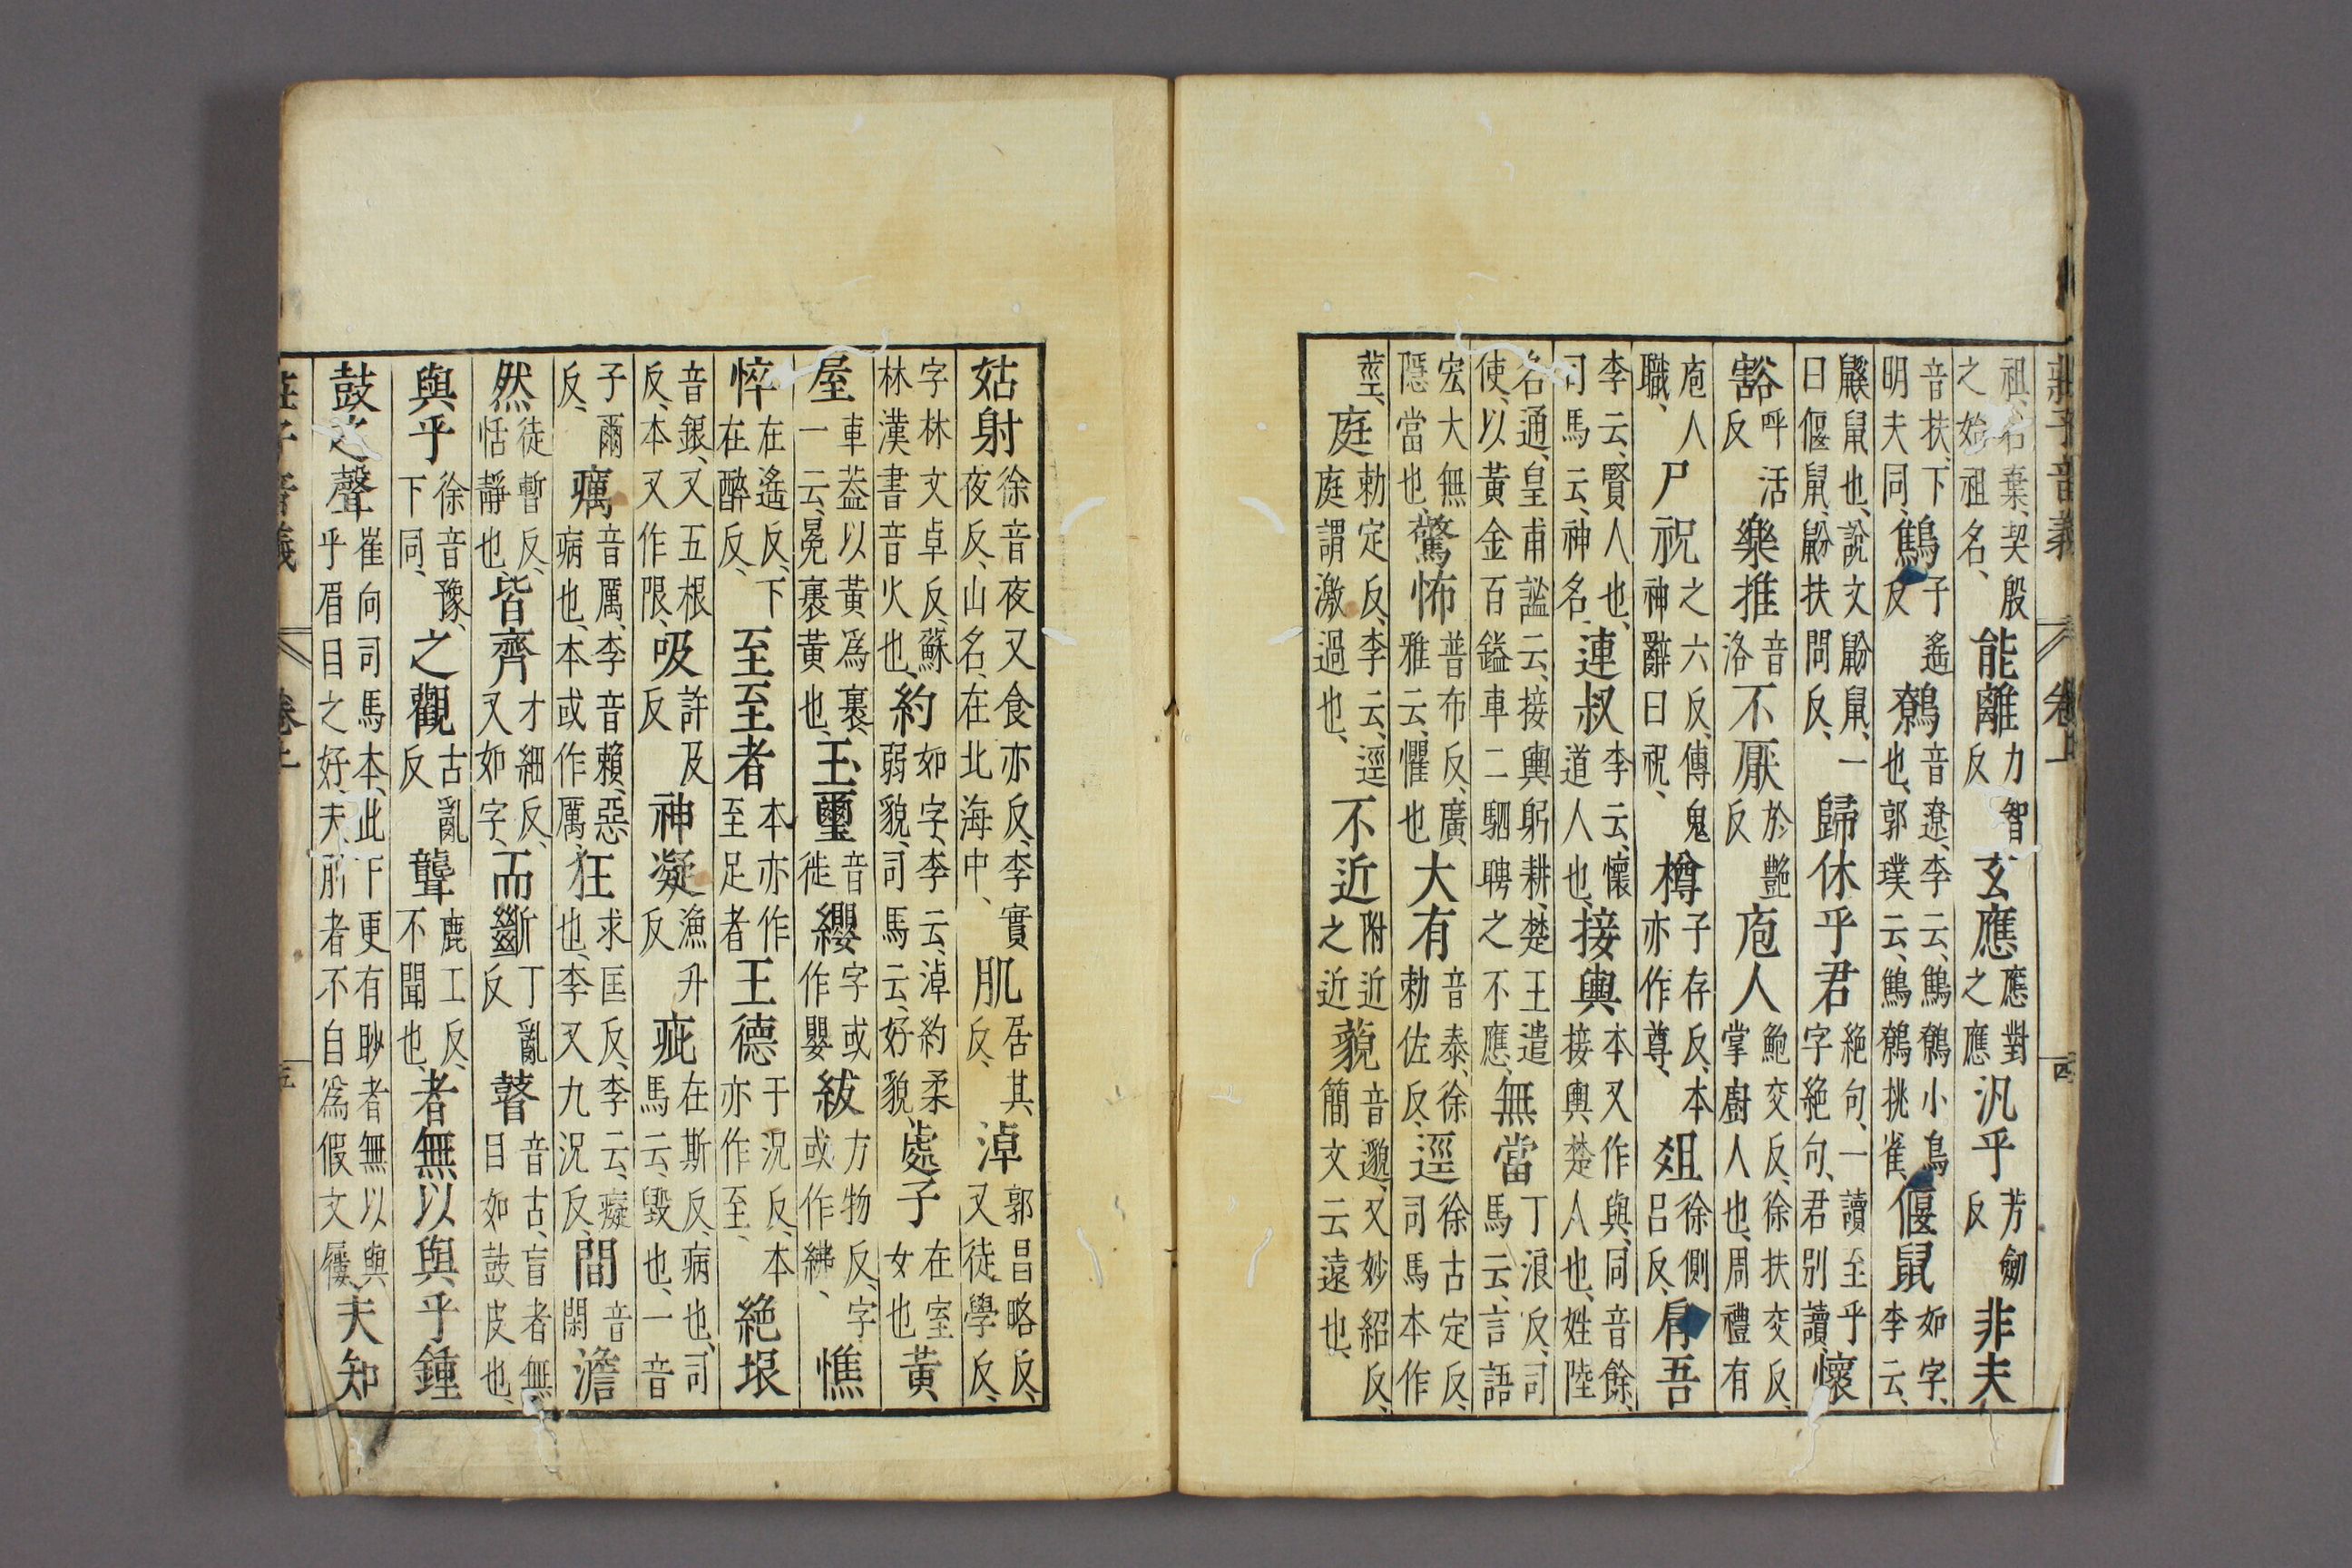 莊子音義 卷上 四
祖、棄、契殷之始祖名、能離力智反玄應應對之應汎乎芳劒反非夫
音扶、下明夫同、鷦子遙反鷯音遼、李云、鷦鷯小鳥也、郭璞云、鷦鷯挑雀、偃鼠如字、李云、
鼷鼠也、說文鼢鼠、一曰偃鼠、鼢扶問反、歸休乎君絶句、一讀至乎字絶句、君別讀、懷
豁呼活反樂推音洛不厭於艷反庖人鮑交反、徐扶交反、掌廚人也、周禮有
庖人職、尸祝之六反、傳鬼神辭曰祝、樽子存反、本亦作尊、俎徐側呂反、肩吾
李云、賢人也、司馬云、神名、連叔李云、懷道人也、接輿本又作與、同音餘、接輿楚人也、姓陸
名通、皇甫謐云、接輿躬耕、楚王遣使、以黃金百鎰車二駟聘之不應、無當丁浪反、司馬云、言語
宏大無隱當也、驚怖普布反、廣雅云、懼也大有音泰、徐勅佐反、逕徐古定反、司馬本作
莖、庭勅定反、李云、逕庭謂激過也、不近附近之近藐音邈、又妙紹反、簡文云遠也、
姑射徐音夜又食亦反、李實夜反、山名、在北海中、肌居其反、淖郭昌略反、又徒學反、
字林文卓反、蘇林漢書音火也、約如字、李云、淖約柔弱貌、司馬云、好貌、處子在室女也黃
屋車葢以黃爲裏、一云、冕裏黃也、玉璽音徙纓字或作嬰紱方物反、字或作紼、憔
悴在遙反、下在醉反、至至者本亦作至足者王德于況反、本亦作至、絶垠
音銀、又五根反、本又作限、吸許及反神凝漁升反疵在斯反、病也、司馬云、毀也、一音
子爾反、癘音厲、李音賴、惡病也、本或作厲、狂求匡反、李云、癡也、李又九況反、間音閑澹
然徒暫反、恬靜也、皆齊才細反、又如字、而斷丁亂反瞽音古、盲者無目如鼓皮也、
與乎徐音豫、下同、之觀古亂反聾鹿工反、不聞也、者無以與乎鍾
鼓之聲崔向司馬本、此下更有眇者無以與乎眉目之好、夫刖者不自爲假文屨、夫知
莊子音義 卷上 五